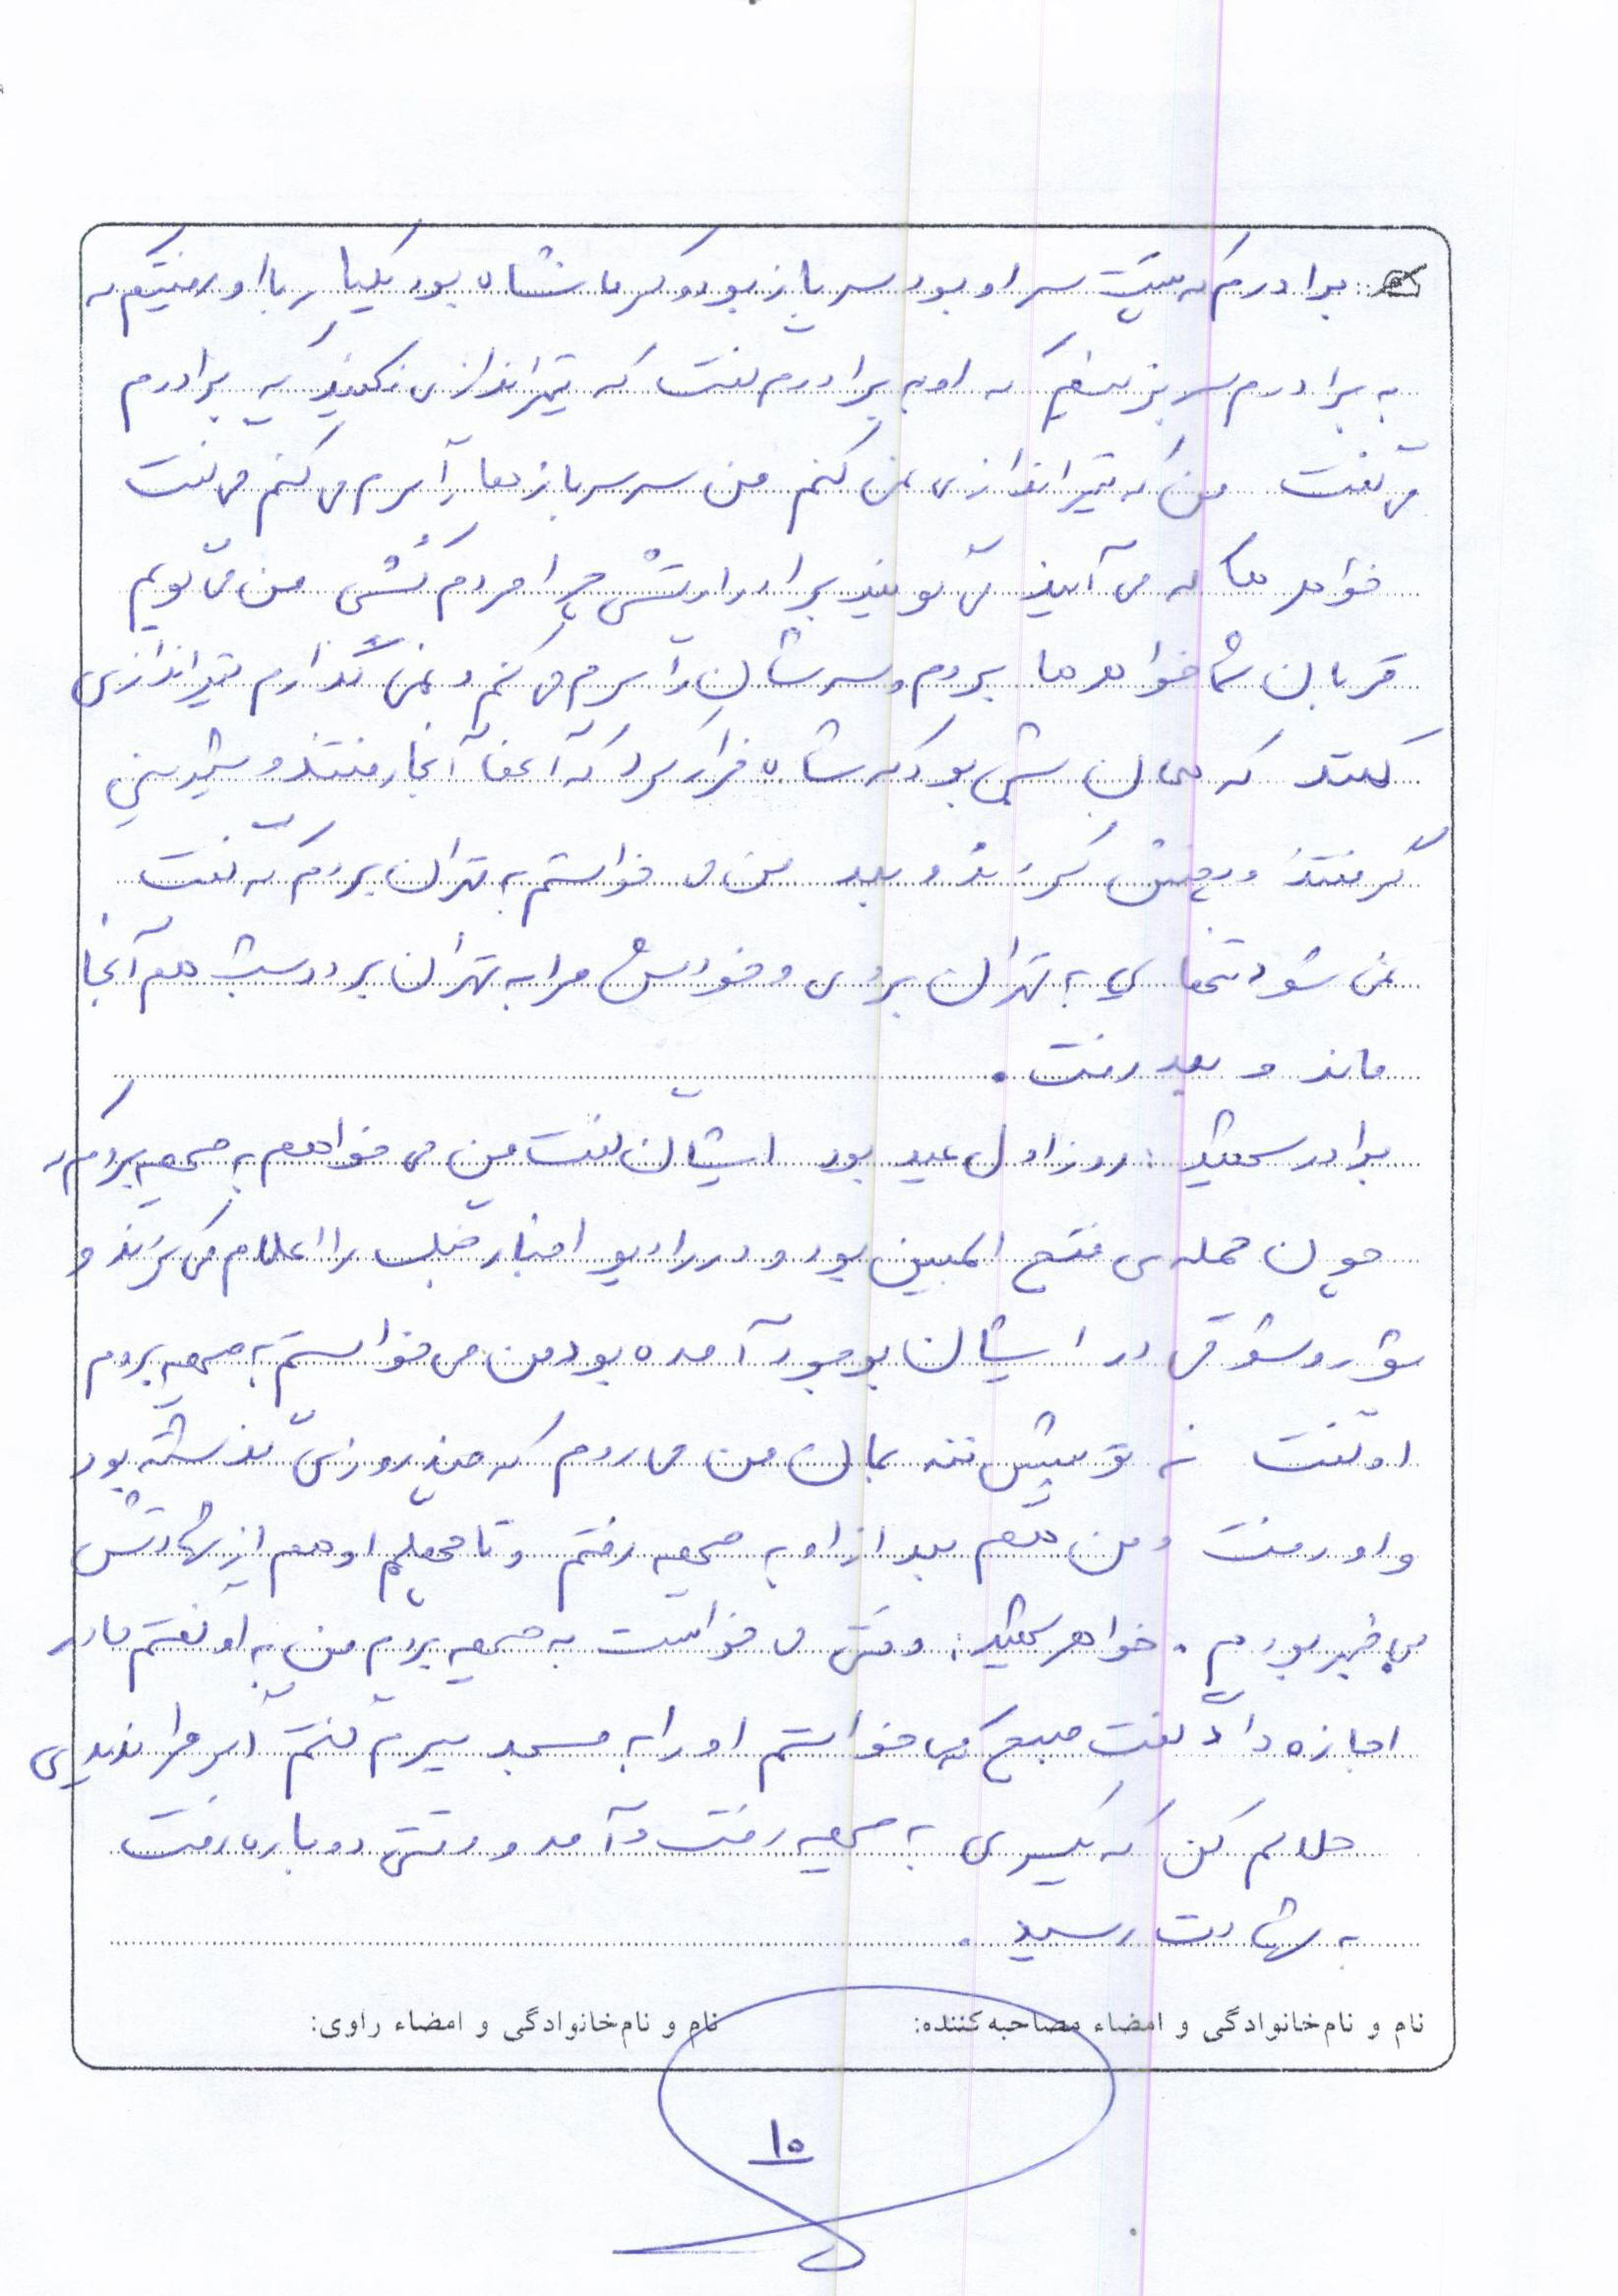 برادرم که پشت سر او بود سرباز بود و کرمانشاه بود یکبار با او رفتیم که
به برادرم سر بزنیم که او به برادرم گفت که تیراندازی نکنید که برادرم
می گفت من که تیراندازی نمی کنم من سر سربازها را گرم می کنم می گفت
خواهرها که می آیند می گویند برادر ارتشی چرا مردم کشی من می گویم
قربان شما خواهرها بروم و سرشان را گرم می کنم و نمی گذارم تیراندازی
کنند که همان شبی بود که شاه فرار کرد که آنها آنجا رفتند و شیرینی
گرفتند و پخش کردند و بعد من می خواستم به تهران بروم که گفت
نمی شود تنهایی به تهران بروی و خودش مرا به تهران برد و شب هم آنجا
ماند و بعد رفت.
برادر شهید: روز اول عید بود ایشان گفت من می خواهم به جبهه بروم
چون حمله ی فتح المبین بود و در رادیو اخبار جنگ را اعلام می کردند و
شور و شوقی در ایشان بوجود آمده بود من می خواستم به جبهه بروم
او گفت نه تو پیش ننه بمان من می روم که چند روزی گذشته بود
و او رفت و من هم بعد از او به جبهه رفتم و تا چهلم او هم از شهادتش
بی خبر بودیم. خواهر شهید: وقتی می خواست به جبهه برود من به او گفتم مادر
اجازه داد گفت صبح که می خواستم او را به مسجد ببرم گفتم اگر مرا ندیدی
حلالم کن که یکسری به جبهه رفت و آمد و وقتی دوباره رفت
به شهادت رسید.
نام و نام‌خانوادگی و امضاء مصاحبه‌کننده: نام و نام‌خانوادگی و امضاء راوی:
۱۰